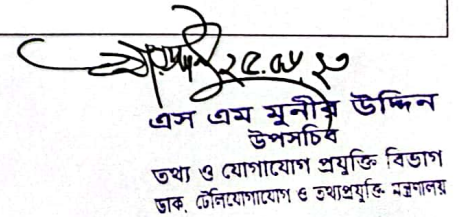 ২৫.০৫.২৩
এস এম মুনীর উদ্দিন
উপসচিব
তথ্য ও যোগাযোগ প্রযুক্তি বিভাগ
ডাক, টেলিযোগাযোগ ও তথ্যপ্রযুক্তি মন্ত্রণালয়